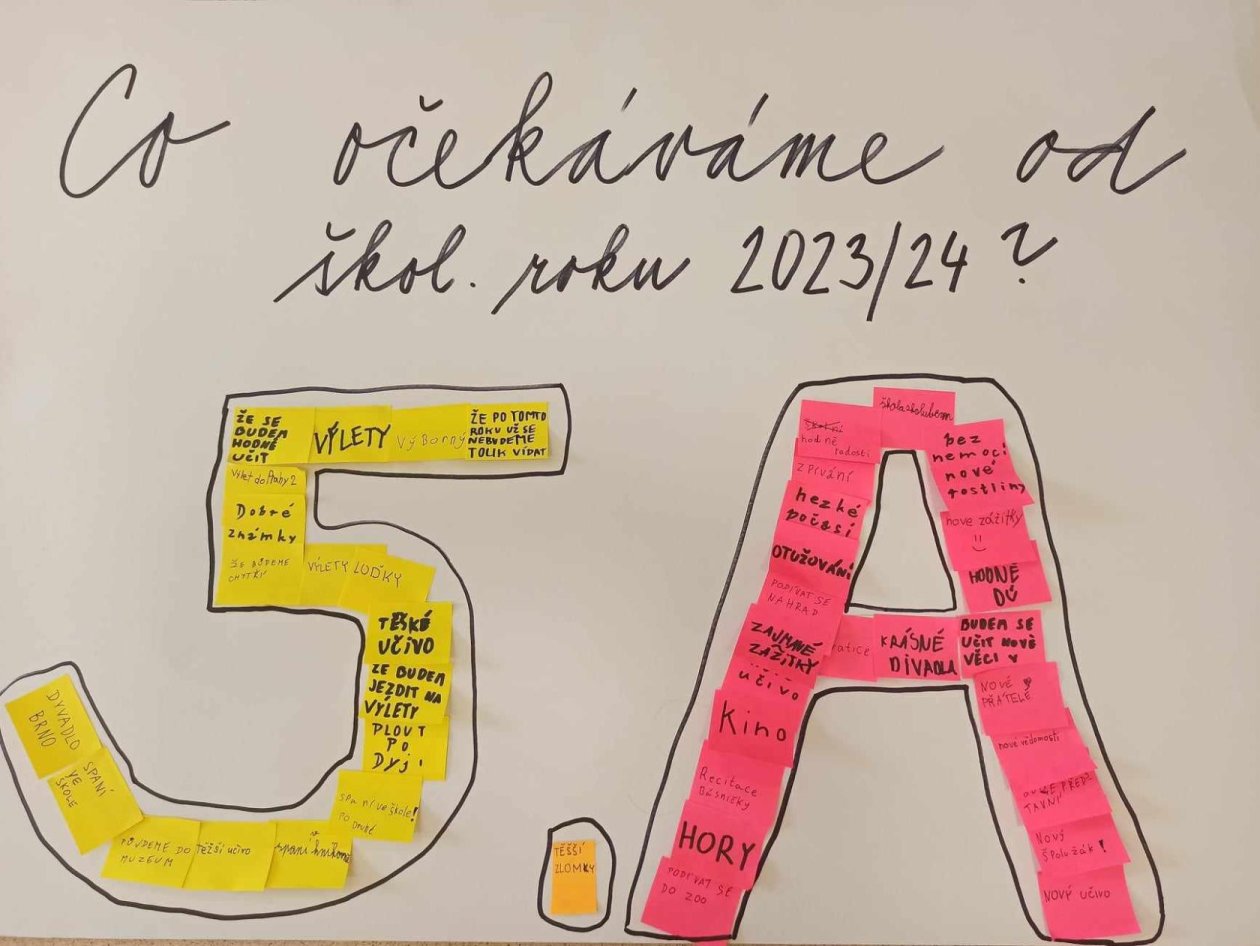 Co očekáváme od
škol. roku 2023/24?
ŽE SE
BUDEM
HODNĚ
UČIT
VÝLETY
Výborný
ŽE PO TOMTO
ROKU UŽ SE
NEBUDEME
TOLIK VÍDAT
Výlet do Prahy 2
Dobré
známky
ŽE BUDEME
CHYTŘÍ
VÝLETY
LOĎKY
TĚŠKÉ
UČIVO
ZE BUDEM
JEZDIT NA
VÝLETY
PLOUT
PO
Dyji
spaní ve škole!
PO DRUHÉ
spaní
TĚŽŠÍ učivo
PŮJDEME DO
MUZEUM
SPANÍ
VE
ŠKOLE
DYVADLO
BRNO
TĚŠŠÍ
ZLOMKY
hodně
radosti
zpívání
hezké
počasí
OTUŽOVÁNÍ
PODÍVAT SE
NA HRAD
ZAJMAVÉ
ZÁŽITKY
učivo
Kino
Recitace
básničky
HORY
PODÍVAT SE
DO ZOO
KRÁSNÉ
DIVADLA
bez
nemocí
nové
rostliny
nové zážitky
!!
HODNĚ
DÚ
BUDEM SE
UČIT NOVÉ
VĚCI
NOVÉ
PŘÁTELÉ
nové vědomosti
Nový
Spolužák!
NOVÝ UČIVO